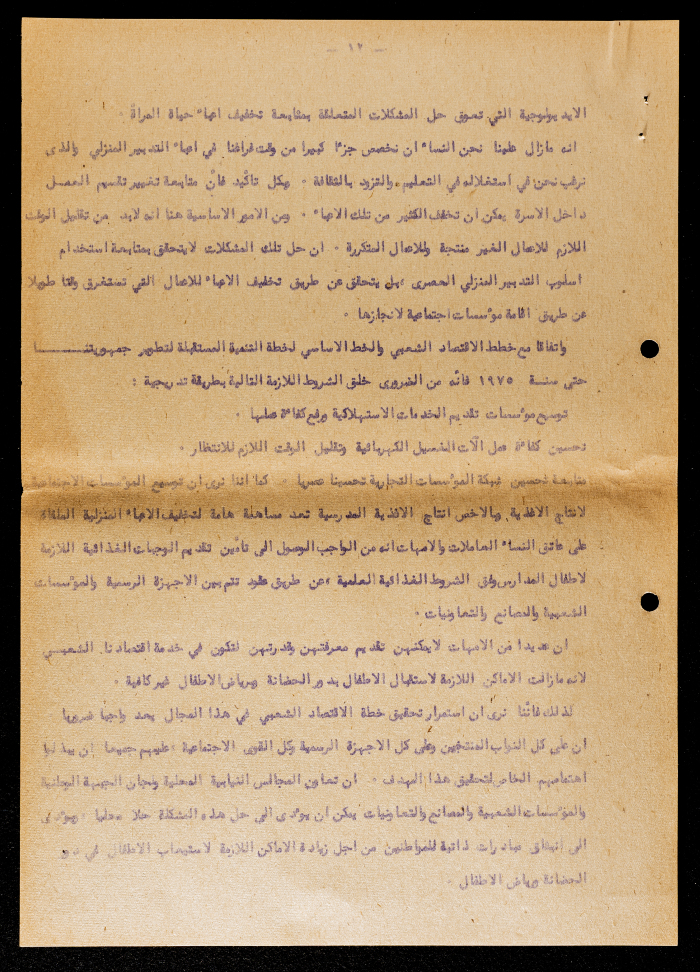 — ١٢ —
الايديولوجية التي تعوق حل المشكلات المتعلقة بمتابعة تخفيف اعباء حياة المرأة ٠
انه مازال علينا نحن النساء ان نخصص جزءا كبيرا من وقت فراغنا في اعباء التدبير المنزلي والذى
نرغب نحن في استغلاله في التعليم والتزود بالثقافة ٠ وبكل تاكيد فان متابعة تغيير تقسيم العمل
داخل الاسرة يمكن ان تخفف الكثير من تلك الاعباء ٠ ومن الامور الاساسية هنا انه لابد من تقليل الوقت
اللازم للاعمال الغير منتجة وللاعمال المتكررة ٠ ان حل تلك المشكلات لايتحقق بمتابعة استخدام
اسلوب التدبير المنزلي العصرى ، بل يتحقق عن طريق تخفيف الاعباء للاعمال التي تستغرق وقتا طويلا
عن طريق اقامة مؤسسات اجتماعية لانجازها ٠
واتفاقا مع خطط الاقتصاد الشعبي والخط الاساسي لخطة التنمية المستقبلة لتطوير جمهوريتنا
حتى سنة ١٩٧٥ فانه من الضرورى خلق الشروط اللازمة التالية بطريقة تدريجية :
توسيع مؤسسات تقديم الخدمات الاستهلاكية ورفع كفاءة عملها ٠
تحسين كفاءة عمل الآت الغسيل الكهربائية وتقليل الوقت اللازم للانتظار ٠
متابعة تحسين شبكة المؤسسات التجارية تحسينا عصريا ٠ كما اننا نرى ان توسيع المؤسسات الاجتماعية
لانتاج الاغذية وبالاخص انتاج الاغذية المدرسية تعد مساهمة هامة لتخفيف الاعباء المنزلية الملقاة
على عاتق النساء العاملات والامهات انه من الواجب الوصول الى تأمين تقديم الوجبات الغذائية اللازمة
لاطفال المدارس وفق الشروط الغذائية العلمية ، عن طريق عقود تتم بين الاجهزة الرسمية والمؤسسات
الشعبية والمصانع والتعاونيات ٠
ان عديدا من الامهات لايمكنهن تقديم معرفتهن وقدرتهن لتكون في خدمة اقتصادنا الشعبي
لانه مازالت الاماكن اللازمة لاستقبال الاطفال بدور الحضانة ورياض الاطفال غير كافية ٠
لذلك فاننا نرى ان استمرار تحقيق خطة الاقتصاد الشعبي في هذا المجال يعد واجبا ضروريا
ان على كل النواب المنتخبين وعلى كل الاجهزة الرسمية وكل القوى الاجتماعية ، عليهم جميعا ان يبذلوا
اهتمامهم الخاص لتحقيق هذا الهدف ٠ ان تعاون المجالس النيابية المحلية ولجان الجبهة الوطنية
والمؤسسات الشعبية والمصانع والتعاونيات يمكن ان يؤدى الى حل هذه المشكلة حلا محليا ويؤدى
الى انبثاق مبادرات ذاتية للمواطنين من اجل زيادة الاماكن اللازمة لاستيعاب الاطفال في دور
الحضانة ورياض الاطفال ٠